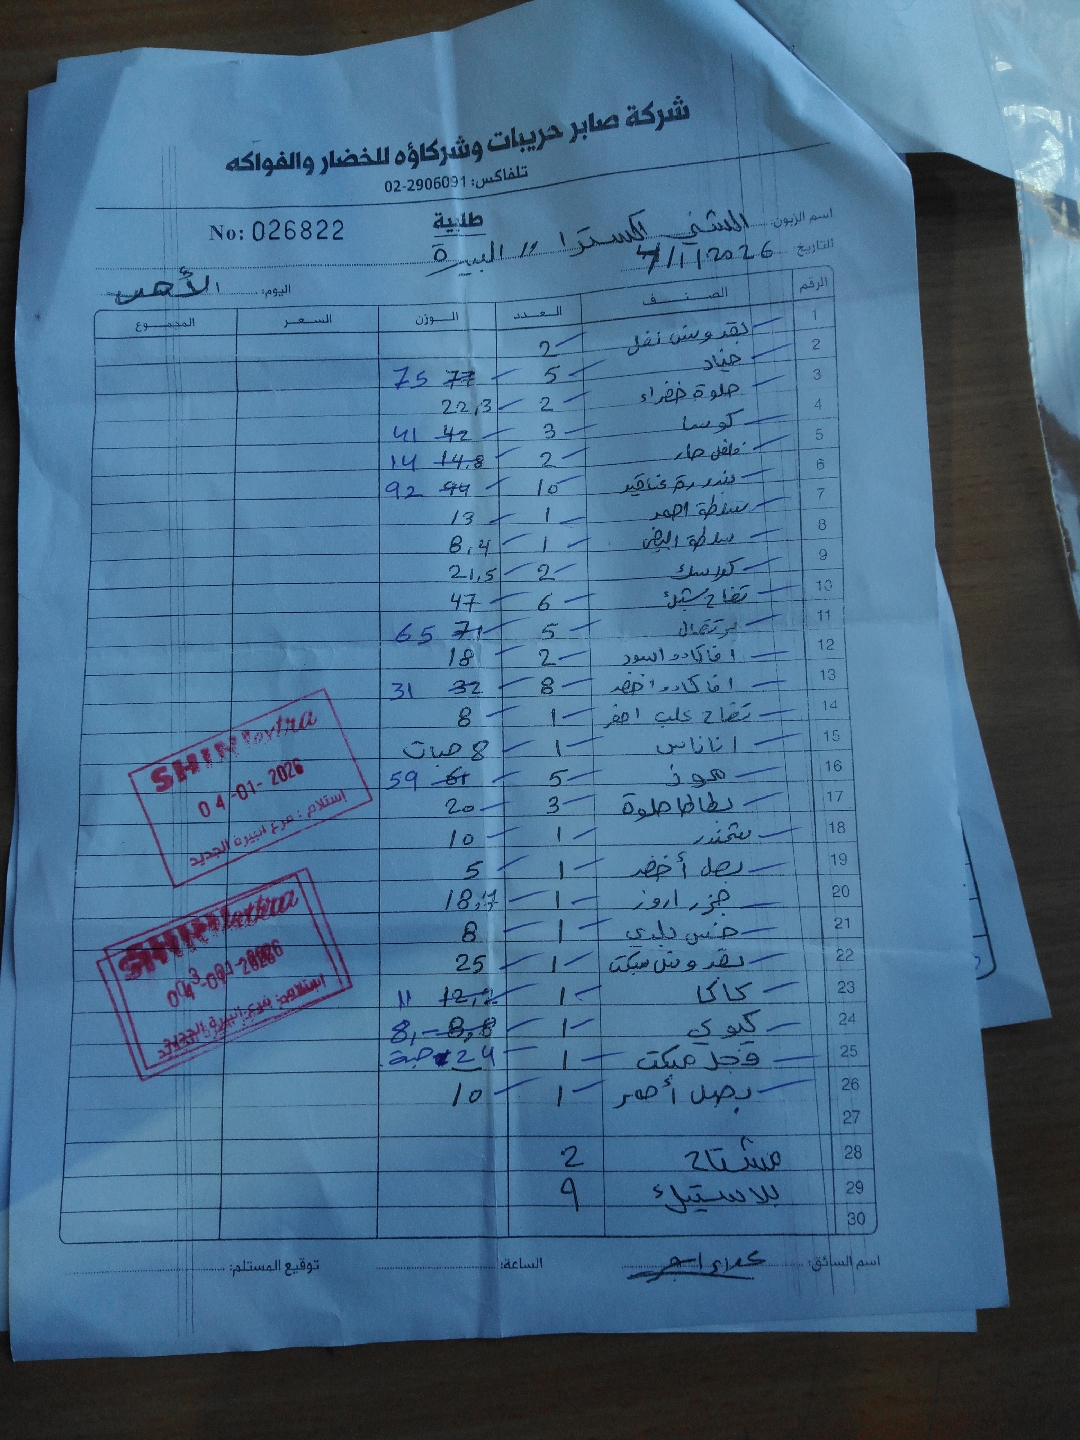 شركة صابر حريبات وشركاؤه للخضار والفواكه
تلفاكس: 02-2906091
No: 026822
طلبية
اسم الزبون: الشني اكسترا // البيرة
التاريخ: 4/1/2026
اليوم: الأحد
الرقم الصنف العدد الوزن السعر المجموع
1 بقدونس نفل 2
2 خيار 5 77 75
3 حلوة خضراء 2 22,3
4 كوسا 3 42 41
5 فلفل حار 2 14.8 14
6 بندورة عناقيد 10 94 92
7 سلطة احمر 1 13
8 سلطة ابيض 1 8,4
9 2 21,5
10 تفاح 6 47
11 برتقال 5 71 65
12 افاكادو اسود 2 18
13 افاكادو اخضر 8 32 31
14 تفاح علب اصفر 1 8
15 اناناس 1 8 حبات
16 موز 5 61 59
17 بطاطا حلوة 3 20
18 شمندر 1 10
19 بصل أخضر 1 5
20 جزر 1
21 خس بلدي 1 8
22 بقدونس مبكت 1 25
23 كاكا 1 11
24 كيوي 1 8,8 8,
25 فجل مبكت 1 24
26 بصل أحمر 1 10
27
28 مشتاح 2
29 بلاستيك 9
30
SHINI extra
04-01-2026
استلام: فرع البيرة الجديد
SHINI extra
استلام: فرع البيرة الجديد
اسم السائق:
الساعة:
توقيع المستلم: